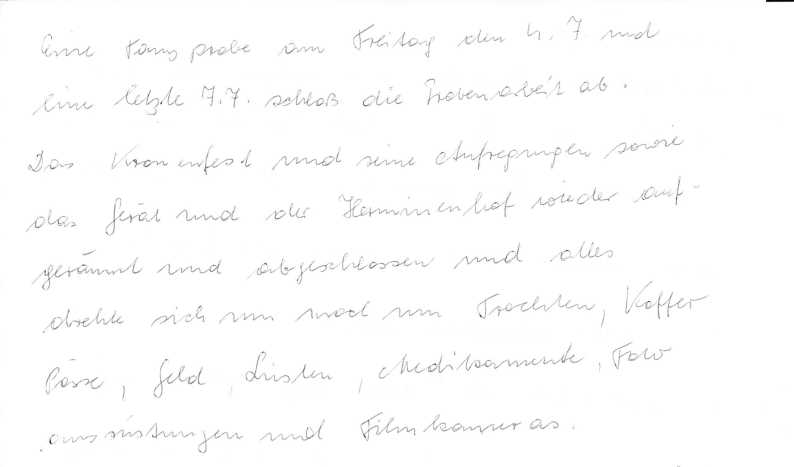 Eine Tanzprobe am Freitag den 4. 7 und
eine letzte 7.7. schloß die Probenarbeit ab.
Das Kronenfest und seine Aufregungen sowie
das Gerät und der Herminenhof wieder auf-
geräumt und abgeschlossen und alles
drehte sich nun noch um Trachten, Koffer
Pässe, Geld, Listen, Medikamente, Foto
ausrüstungen und Filmkameras.